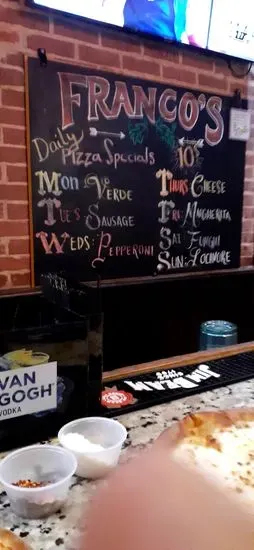 FRANCO'S
Daily Pizza Specials
10
Mon: Verde
Tue's: Sausage
Weds: Pepperoni
Thurs: Cheese
Fri: Margherita
Sat: Funghi
Sun: Locavore
VAN
GOGH
VODKA
JIM BEAM